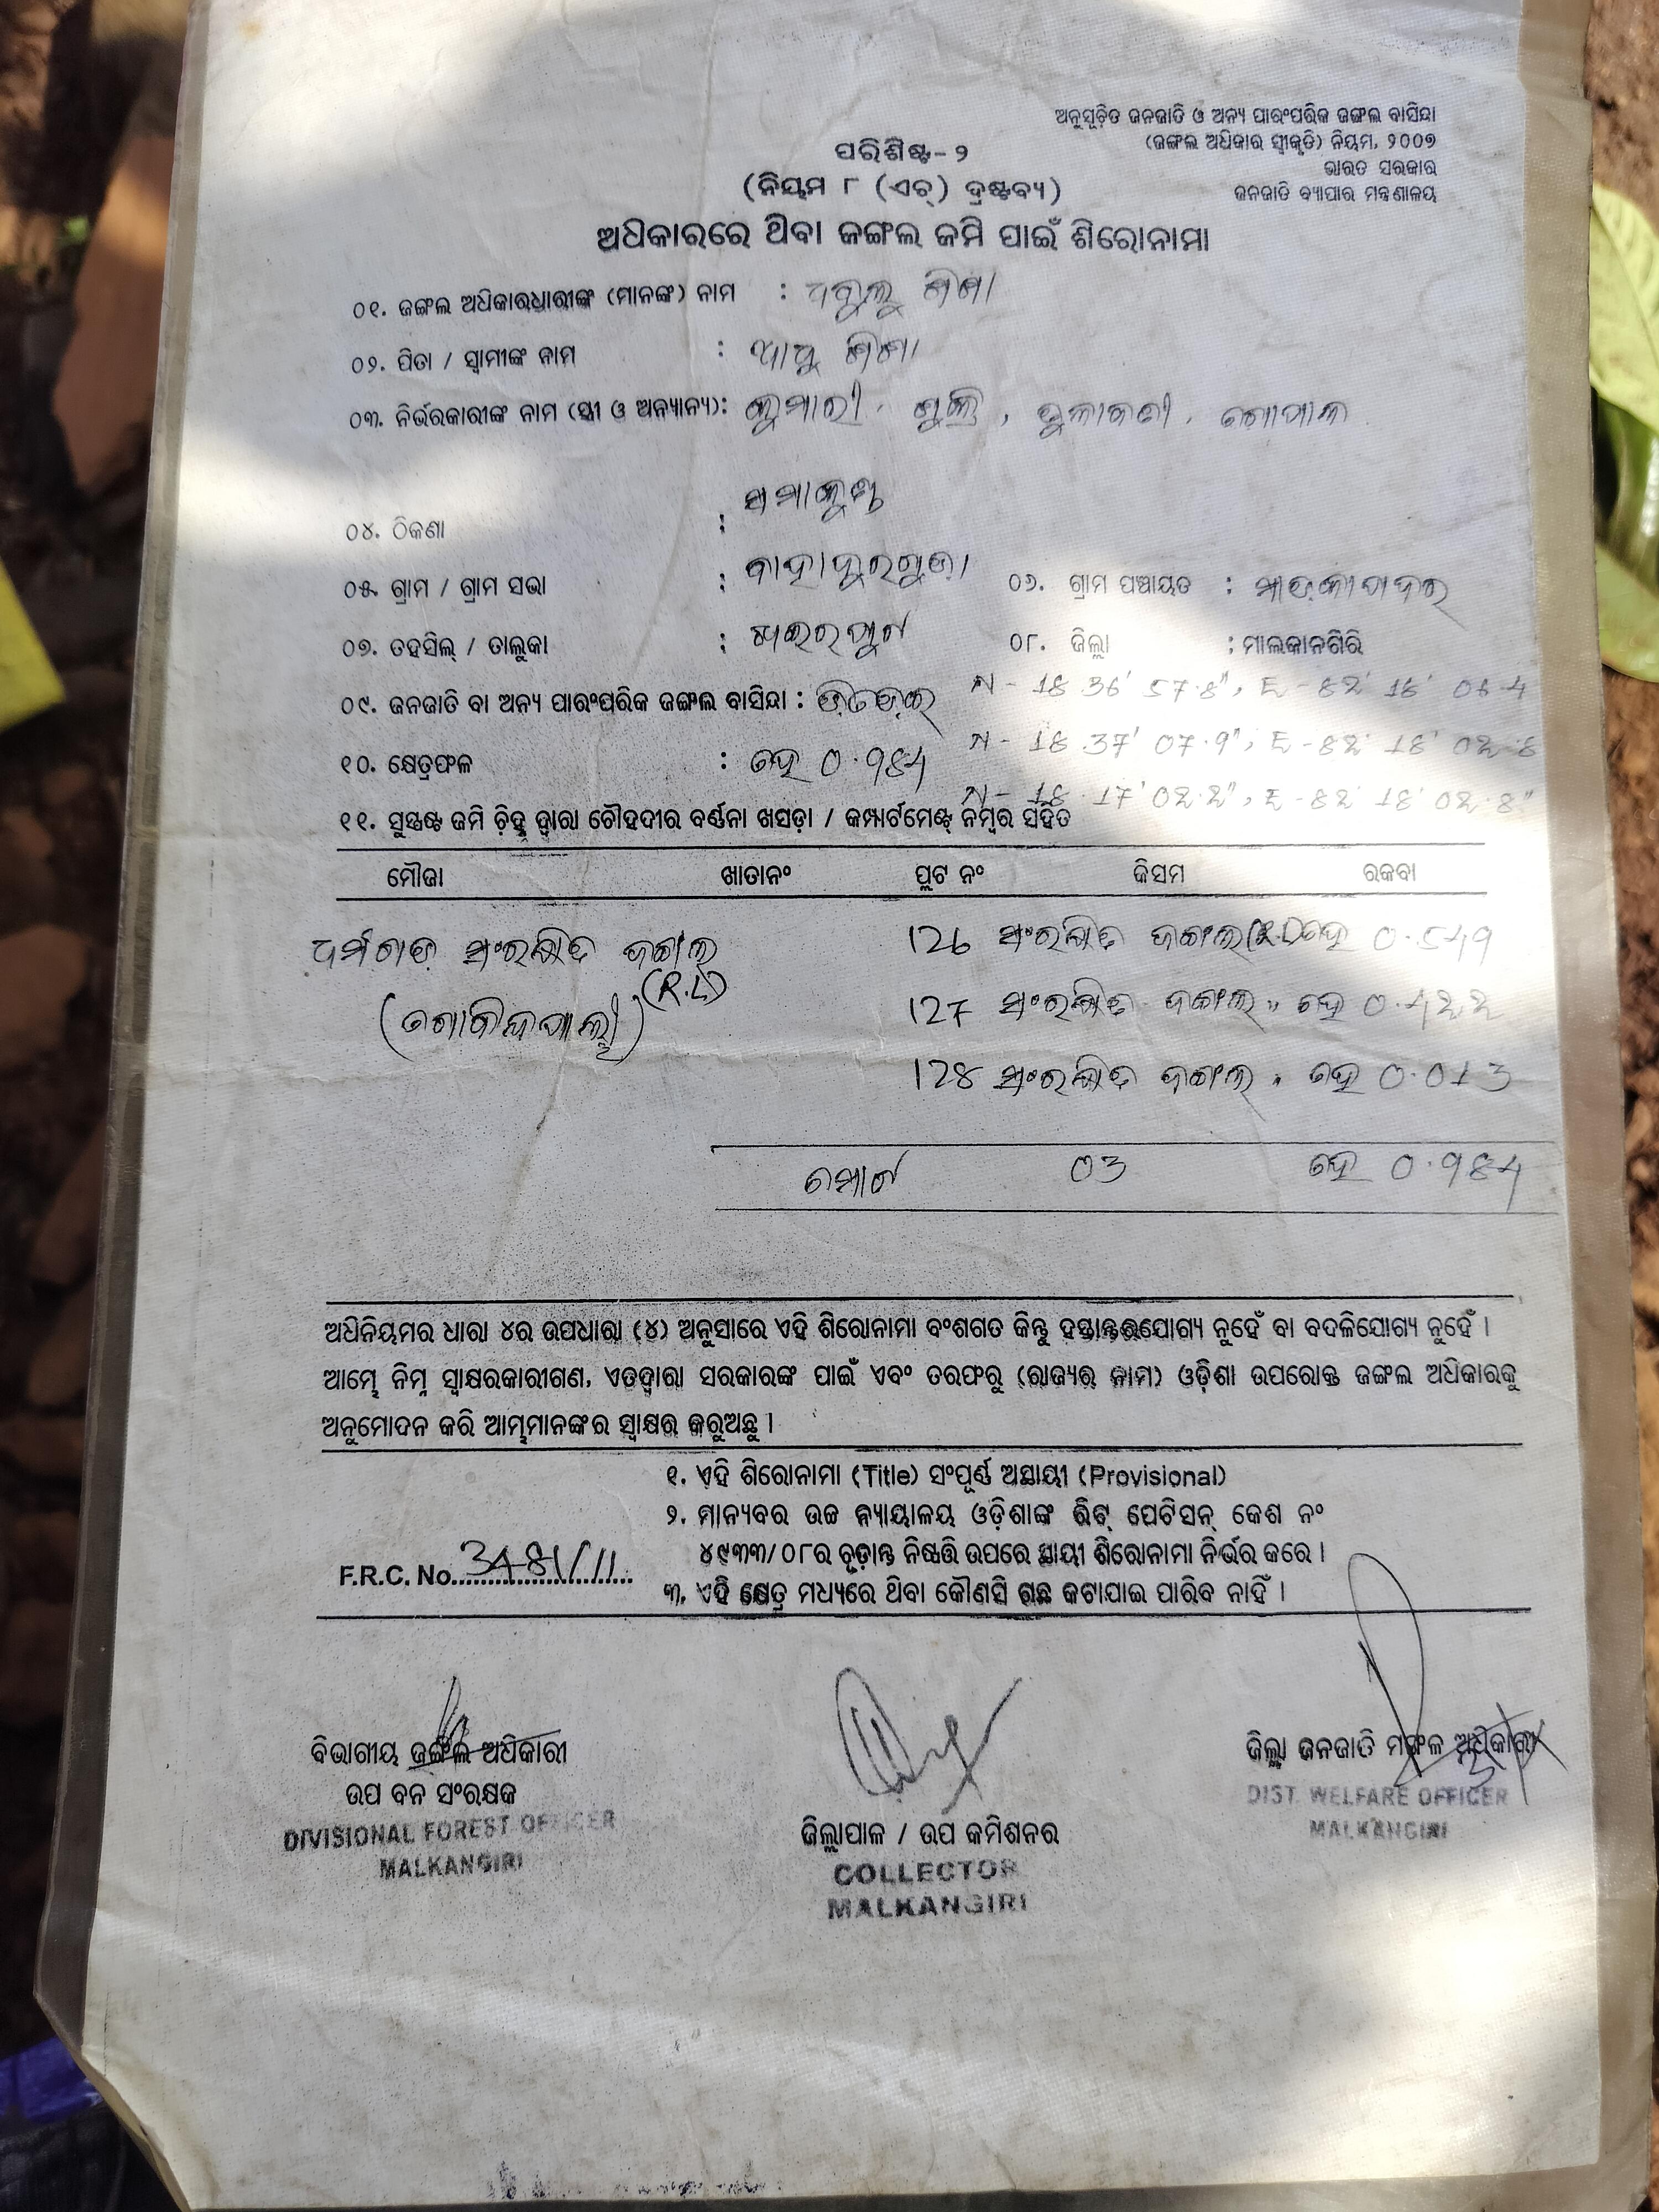 ଅନୁସୂଚିତ ଜନଜାତି ଓ ଅନ୍ୟ ପାରଂପରିକ ଜଙ୍ଗଲ ବାସିନ୍ଦା
(ଜଙ୍ଗଲ ଅଧିକାର ସ୍ୱୀକୃତି) ନିୟମ, ୨୦୦୭
ଭାରତ ସରକାର
ଜନଜାତି ବ୍ୟାପାର ମନ୍ତ୍ରଣାଳୟ
ପରିଶିଷ୍ଟ-୨
(ନିୟମ ୮ (ଏଚ୍) ଦ୍ରଷ୍ଟବ୍ୟ)
ଅଧିକାରରେ ଥିବା ଜଙ୍ଗଲ ଜମି ପାଇଁ ଶିରୋନାମା
୦୧. ଜଙ୍ଗଲ ଅଧିକାରଧାରୀଙ୍କ (ମାନଙ୍କ) ନାମ :
୦୨. ପିତା / ସ୍ୱାମୀଙ୍କ ନାମ :
୦୩. ନିର୍ଭରକାରୀଙ୍କ ନାମ (ସ୍ତ୍ରୀ ଓ ଅନ୍ୟାନ୍ୟ): କୁମାରୀ,
୦୪. ଠିକଣା :
୦୫. ଗ୍ରାମ / ଗ୍ରାମ ସଭା : ବାହାଦୁରଗୁଡ଼ା ୦୬. ଗ୍ରାମ ପଞ୍ଚାୟତ :
୦୭. ତହସିଲ୍ / ତାଲୁକା : ଖଇରପୁଟ ୦୮. ଜିଲ୍ଲା : ମାଲକାନଗିରି
୦୯. ଜନଜାତି ବା ଅନ୍ୟ ପାରଂପରିକ ଜଙ୍ଗଲ ବାସିନ୍ଦା : N - 18 36' 57.8", E - 82' 18' 06.4
୧୦. କ୍ଷେତ୍ରଫଳ : ହେ 0.984 N - 18 37' 07.9", E - 82' 18' 02.8
N - 18 17' 02.2", E - 82' 18' 02.8"
୧୧. ସୁସ୍ପଷ୍ଟ ଜମି ଚିହ୍ନ ଦ୍ୱାରା ଚୌହଦୀର ବର୍ଣ୍ଣନା ଖସଡ଼ା / କମ୍ପାର୍ଟମେଣ୍ଟ୍ ନମ୍ବର ସହିତ
ମୌଜା ଖାତାନଂ ପ୍ଲଟ ନଂ କିସମ ରକବା
ଧର୍ମଗଡ଼ ସଂରକ୍ଷିତ ଜଙ୍ଗଲ (R.L) 126 ସଂରକ୍ଷିତ ଜଙ୍ଗଲ (R.L) ହେ 0.549
(ଗୋବିନ୍ଦପାଲ୍ଲୀ) 127 ସଂରକ୍ଷିତ ଜଙ୍ଗଲ " ହେ 0.422
128 ସଂରକ୍ଷିତ ଜଙ୍ଗଲ " ହେ 0.013
ମୋଟ 03 ହେ 0.984
ଅଧିନିୟମର ଧାରା ୪ର ଉପଧାରା (୪) ଅନୁସାରେ ଏହି ଶିରୋନାମା ବଂଶଗତ କିନ୍ତୁ ହସ୍ତାନ୍ତରଯୋଗ୍ୟ ନୁହେଁ ବା ବଦଳିଯୋଗ୍ୟ ନୁହେଁ ।
ଆମ୍ଭେ ନିମ୍ନ ସ୍ୱାକ୍ଷରକାରୀଗଣ, ଏତଦ୍ୱାରା ସରକାରଙ୍କ ପାଇଁ ଏବଂ ତରଫରୁ (ରାଜ୍ୟର ନାମ) ଓଡ଼ିଶା ଉପରୋକ୍ତ ଜଙ୍ଗଲ ଅଧିକାରକୁ
ଅନୁମୋଦନ କରି ଆମ୍ଭମାନଙ୍କର ସ୍ୱାକ୍ଷର କରୁଅଛୁ ।
୧. ଏହି ଶିରୋନାମା (Title) ସଂପୂର୍ଣ୍ଣ ଅସ୍ଥାୟୀ (Provisional)
୨. ମାନ୍ୟବର ଉଚ୍ଚ ନ୍ୟାୟାଳୟ ଓଡ଼ିଶାଙ୍କ ରିଟ୍ ପେଟିସନ୍ କେଶ ନଂ
୪୯୩୩/୦୮ର ଚୂଡ଼ାନ୍ତ ନିଷ୍ପତ୍ତି ଉପରେ ସ୍ଥାୟୀ ଶିରୋନାମା ନିର୍ଭର କରେ ।
F.R.C. No. 3481/11
୩. ଏହି କ୍ଷେତ୍ର ମଧ୍ୟରେ ଥିବା କୌଣସି ଗଛ କଟାଯାଇ ପାରିବ ନାହିଁ ।
ବିଭାଗୀୟ ଜଙ୍ଗଲ ଅଧିକାରୀ
ଉପ ବନ ସଂରକ୍ଷକ
DIVISIONAL FOREST OFFICER
MALKANGIRI
ଜିଲ୍ଲାପାଳ / ଉପ କମିଶନର
COLLECTOR
MALKANGIRI
ଜିଲ୍ଲା ଜନଜାତି ମଙ୍ଗଳ ଅଧିକାରୀ
DIST. WELFARE OFFICER
MALKANGIRI